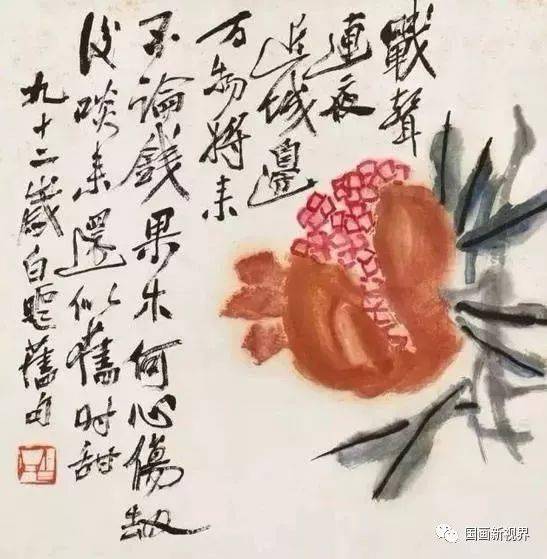 戰聲
連夜
城邊
万物將来
不論錢果木何心傷劫
後啖来還似舊時甜
九十二歲白舊句
国画新视界